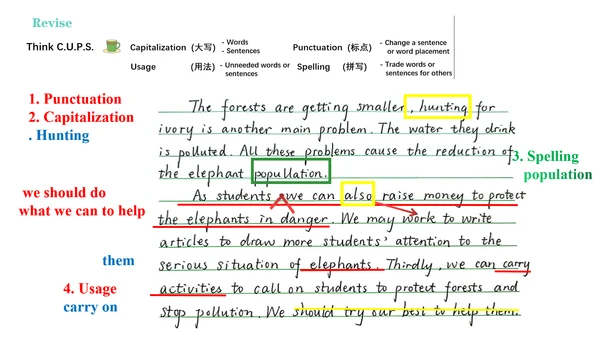 Revise
Think C.U.P.S.
Capitalization (大写) - Words - Sentences
Punctuation (标点) - Change a sentence or word placement
Usage (用法) - Unneeded words or sentences
Spelling (拼写) - Trade words or sentences for others
1. Punctuation
2. Capitalization
. Hunting
The forests are getting smaller, hunting for
ivory is another main problem. The water they drink
is polluted. All these problems cause the reduction of
the elephant popullation.
3. Spelling
population
we should do
what we can to help
As students, we can also raise money to protect
the elephants in danger. We may work to write
articles to draw more students' attention to the
serious situation of elephants. Thirdly, we can carry
activities to call on students to protect forests and
stop pollution. We should try our best to help them.
them
4. Usage
carry on